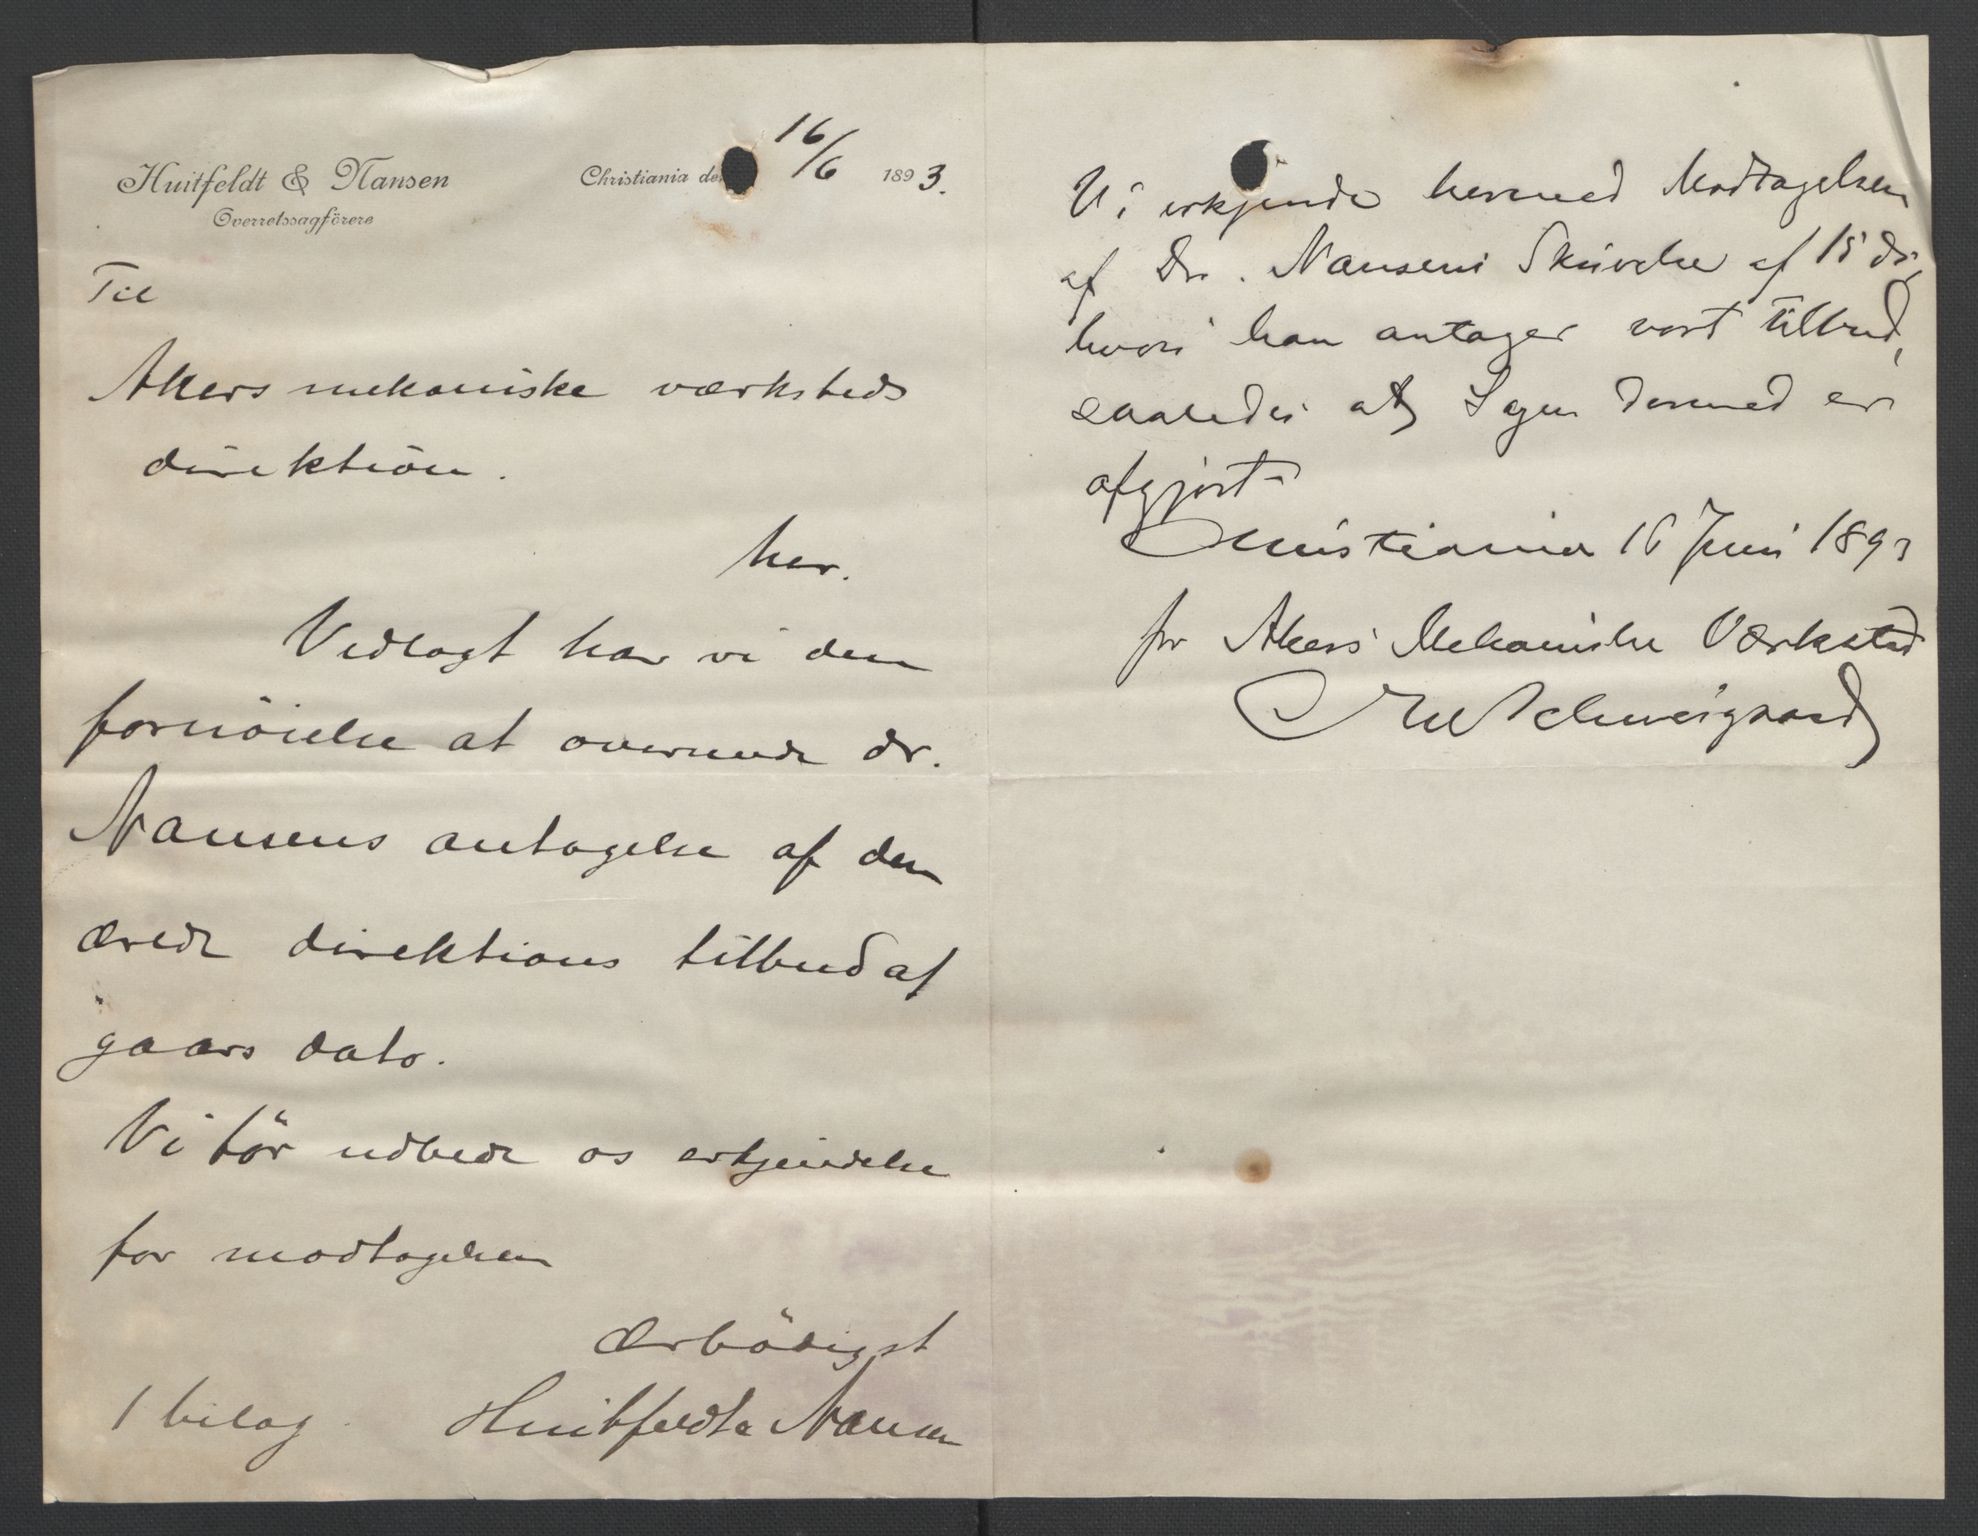 Huitfeldt & Nansen
Overretssagförere
Christiania den 16/6 1893.
Til
Akers mekaniske værksteds
direktion.
her.
Vedlagt har vi den
fornöielse at oversende dr.
Nansens antagelse af den
ærede direktions tilbud af
gaars dato.
Vi tör udbede os erkjendelse
for modtagelsen
Ærbödigst
1 bilag Huitfeldt & Nansen
Vi erkjende hermed Modtagelsen
af Dr. Nansens Skrivelse af 15 ds,
hvori han antager vort tilbud,
saaledes at Sagen dermed er
afgjort
Christiania 16 Juni 1893
for Akers Mekaniske Værksted
Schweigaard